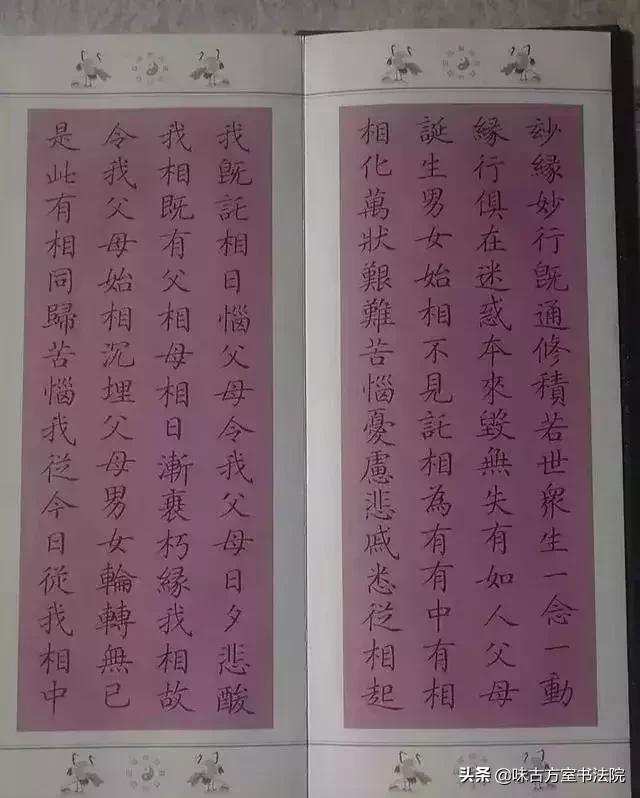 玅緣妙行旣通修積若世衆生一念一動
緣行俱在迷惑本來毀無失有如人父母
誕生男女始相不見託相為有有中有相
相化萬狀艱難苦惱憂慮悲戚悉從相起
我旣託相日惱父母令我父母日夕悲酸
我相既有父相母相日漸衰朽緣我相故
令我父母始相沉埋父母男女輪轉無已
是此有相同歸苦惱我從今日從我相中
头条 @味古方室书法院